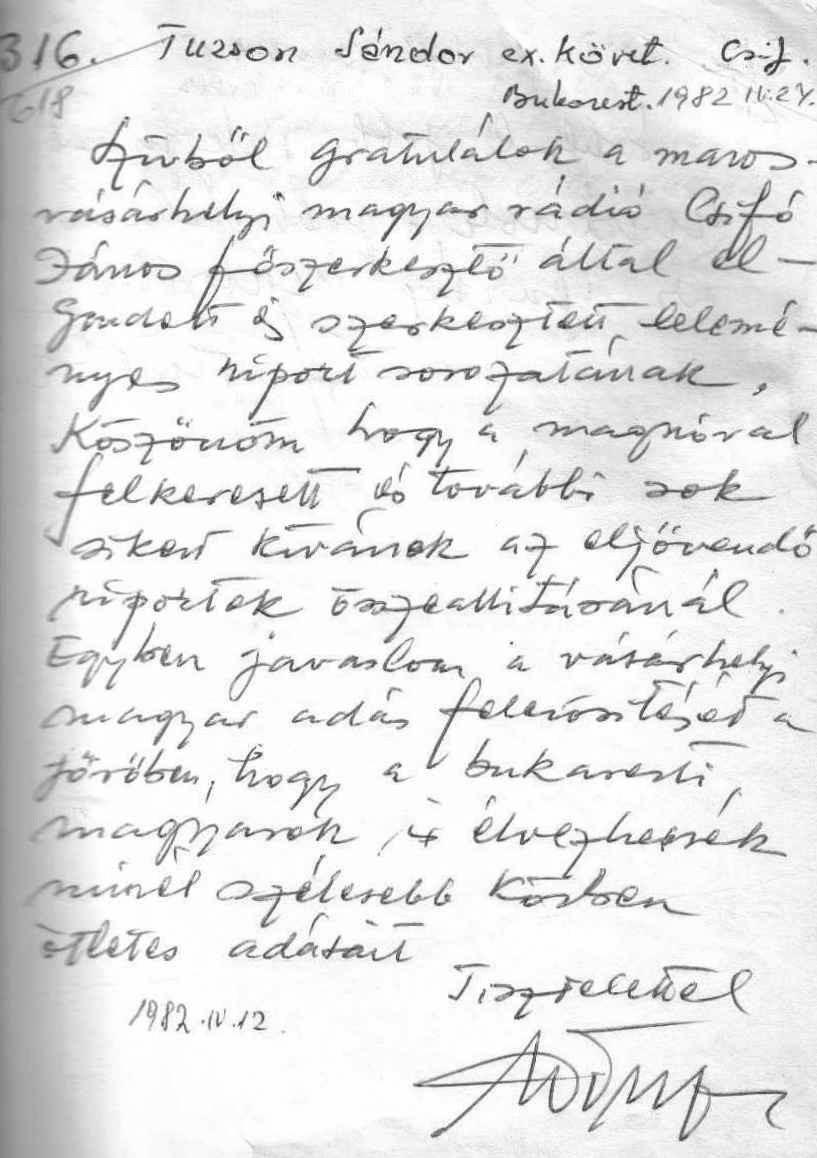 316. Tuzson Sándor ex. követ. Csif.
618
Bukarest. 1982 IV. 24.
Szívből gratulálok a maros-
vásárhelyi magyar rádió Csifó
János főszerkesztő által el-
gondolt és szerkesztett lelemé-
nyes riport sorozatának,
Köszönöm hogy a magnóval
felkeresett és további sok
sikert kívánok az eljövendő
riportok összeállításánál.
Egyben javaslom a vásárhelyi
magyar adás felerősítését a
jövőben, hogy a bukaresti,
magyarok is élvezhessék
minél szélesebb körben
ötletes adásait
Tisztelettel
1982.IV.12.